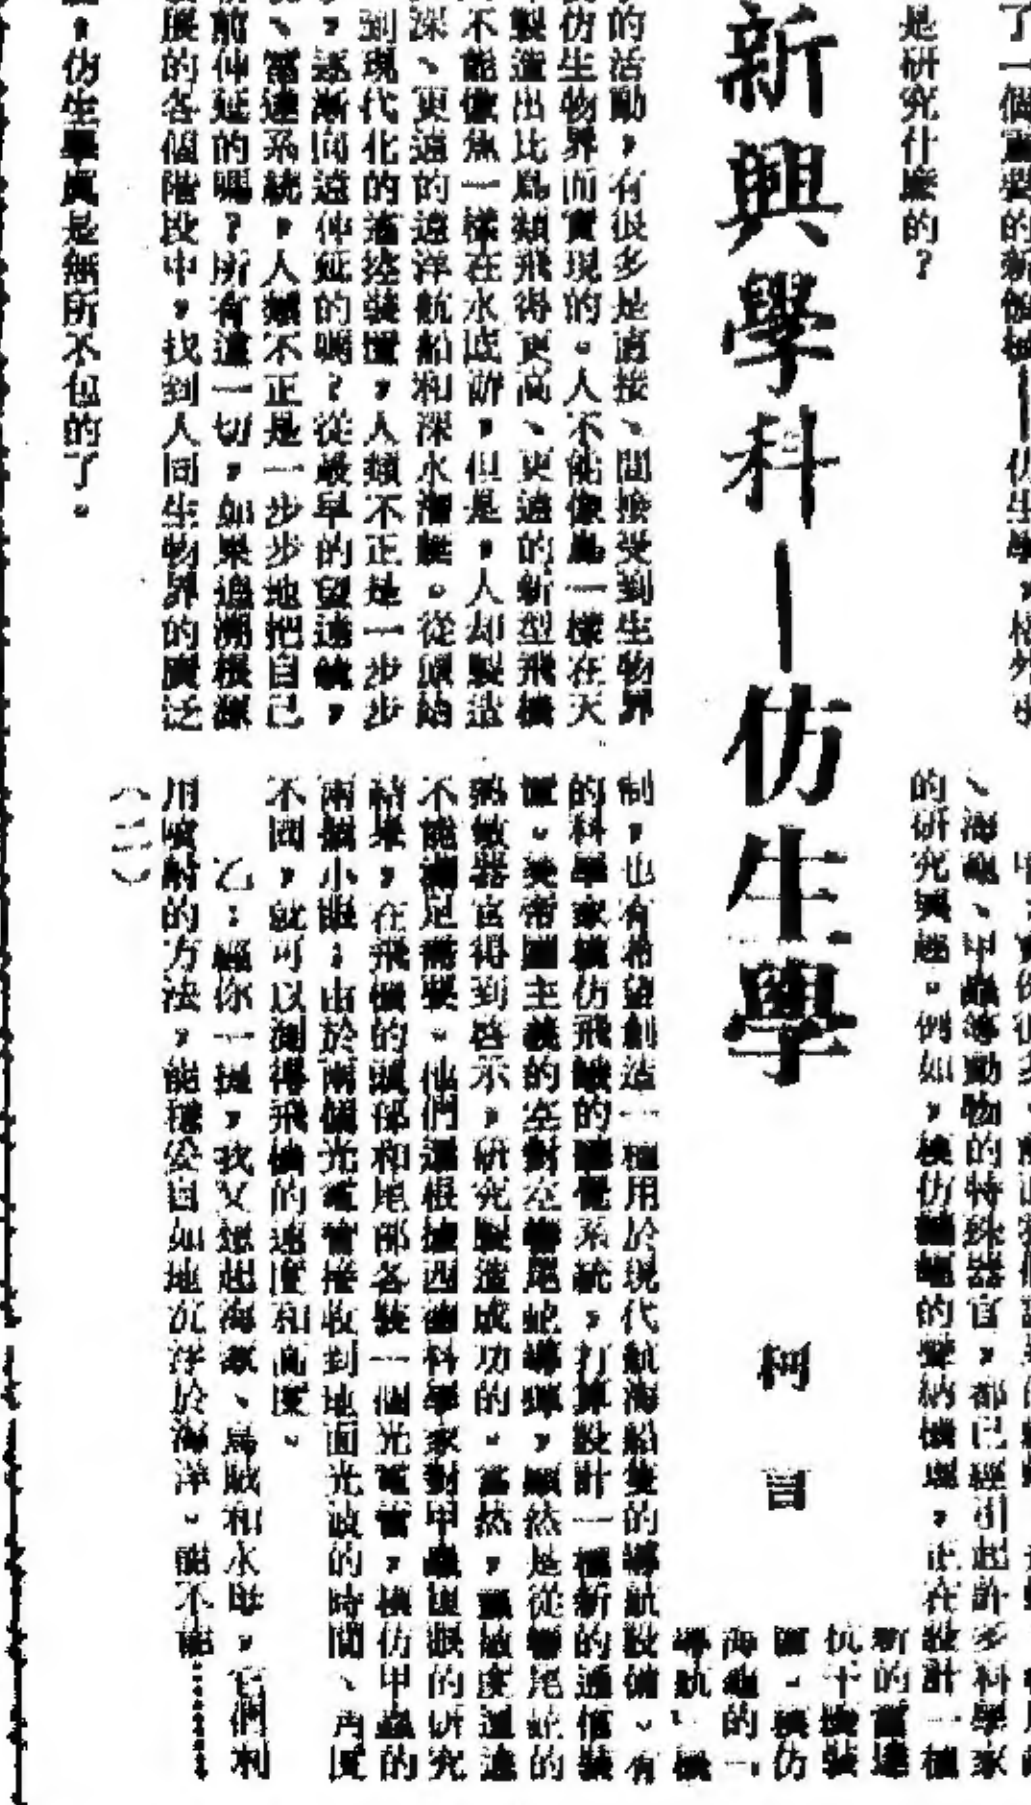 了一個重要的新領域——仿生學,格外
是研究什麼的?
新興學科—仿生學
柯言
的活動,有很多是直接、間接受到生物界
仿生物界而實現的。人不能像鳥一樣在天
製造出比鳥類飛得更高、更遠的新型飛機
不能像魚一樣在水底游,但是,人却製造
深、更遠的遠洋航船和深水潛艇。從原始
到現代化的遙控裝置,人類不正是一步步
,逐漸向遠伸延的嗎?從最早的望遠鏡,
、雷達系統,人類不正是一步步地把自己
前伸延的嗎?所有這一切,如果追溯根源
展的各個階段中,找到人同生物界的廣泛
,仿生學真是無所不包的了。
、海龜、甲蟲等動物的特殊器官,都已經引起許多科學家
的研究興趣。例如,模仿蝙蝠的聲納機理,正在設計一種
新的雷達
抗干擾裝
置。模仿
海龜的
導航、機
制,也有希望創造一種用於現代航海船隻的導航設備。有
的科學家模仿飛蛾的聽覺系統,打算設計一種新的通信裝
置。美帝國主義的空對空響尾蛇導彈,顯然是從響尾蛇的
熱敏器官得到啓示,研究製造成功的。當然,靈敏度還遠
不能滿足需要。他們還根據西德科學家對甲蟲復眼的研究
結果,在飛機的頭部和尾部各裝一個光電管,模仿甲蟲的
兩個小眼;由於兩個光電管接收到地面光波的時間、角度
不同,就可以測得飛機的速度和高度。
乙:經你一提,我又想起海蜇、烏賊和水母,它們利
用噴射的方法,能穩妥自如地沉浮於海洋。能不能……
(二)